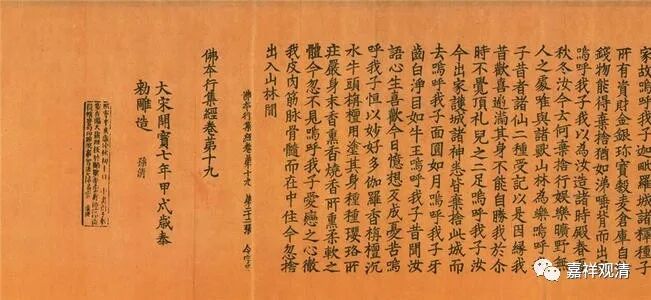 家故嗚呼我子迦毗羅城諸釋種子
所有資財金銀珍寶穀麥倉庫自
錢物能得棄捨猶如涕唾背而出
嗚呼我子我以為汝造諸時殿春
秋冬汝今去何棄捨行娛樂曠野
人之處唯與諸獸山林為樂嗚呼
子昔者諸仙二種受記以是因緣我
昔歡喜遍滿其身不能自勝我於尒
時不覺頂礼兒之二足嗚呼我子汝
今出家護城諸神悉皆棄捨此城而
去嗚呼我子面圓如月嗚呼我子牙
齒白淨目如牛王嗚呼我子昔聞汝
語心生喜歡今日憶想反成憂苦嗚
呼我子恒以妙好多伽羅香栴檀沉
水牛頭栴檀用塗其身種種瓔珞所
莊嚴身末香熏香燒香所熏柔軟之
體今忽不見嗚呼我子愛戀之心徹
我皮肉筋脉骨髓而在中住今忽捨
出入山林間
佛本行集經卷第十九 張
佛本行集經卷第十九
大宋開寶七年甲戌歲奉
勑雕造 孫清
嘉祥观清